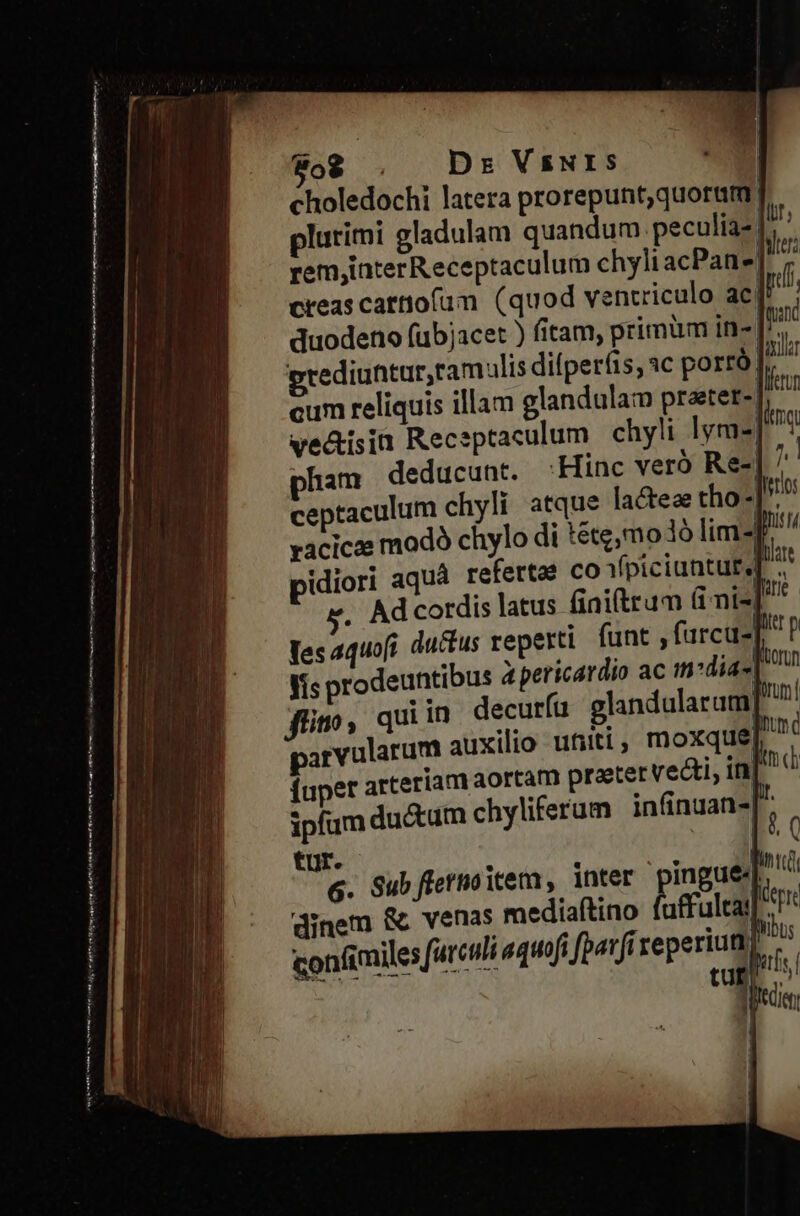 508 DE VENIS
choledochi latera prorepunt, quorum
plurimi gladulam quandum peculia-
rem, inter Receptaculum chyli ac Pan-
creas carnoſum (quod ventriculo ac
duodeno ſubjacet) ſitam, primùm in-
grediuntur, ramulis diſperſis, ac porrò
cum reliquis illam glandulam præter-
vectis in Receptaculum chyli lym-
pham deducunt. Hinc verò Re-
ceptaculum chyli atque lacteæ tho-
racicæ modò chylo diſtẽtę, modò lim-
pidiori aquâ refertæ conſpiciuntur.
5. Ad cordis latus ſiniſtrum ſimi-
les aquoſi ductus reperti ſunt, ſurcu-
lis prodeuntibus à pericardio ac media-
ſtino, qui in decurſu glandularum
parvularum auxilio uniti, moxque
ſuper arteriam aortam prætervecti, in
ipſum ductum chyliferum inſinuan-
tur.
6. Sub ſterno item, inter pingue-
dinem & venas mediaſtino ſuffultas
conſimiles ſurculi aquoſi ſparſi reperiun-
tur